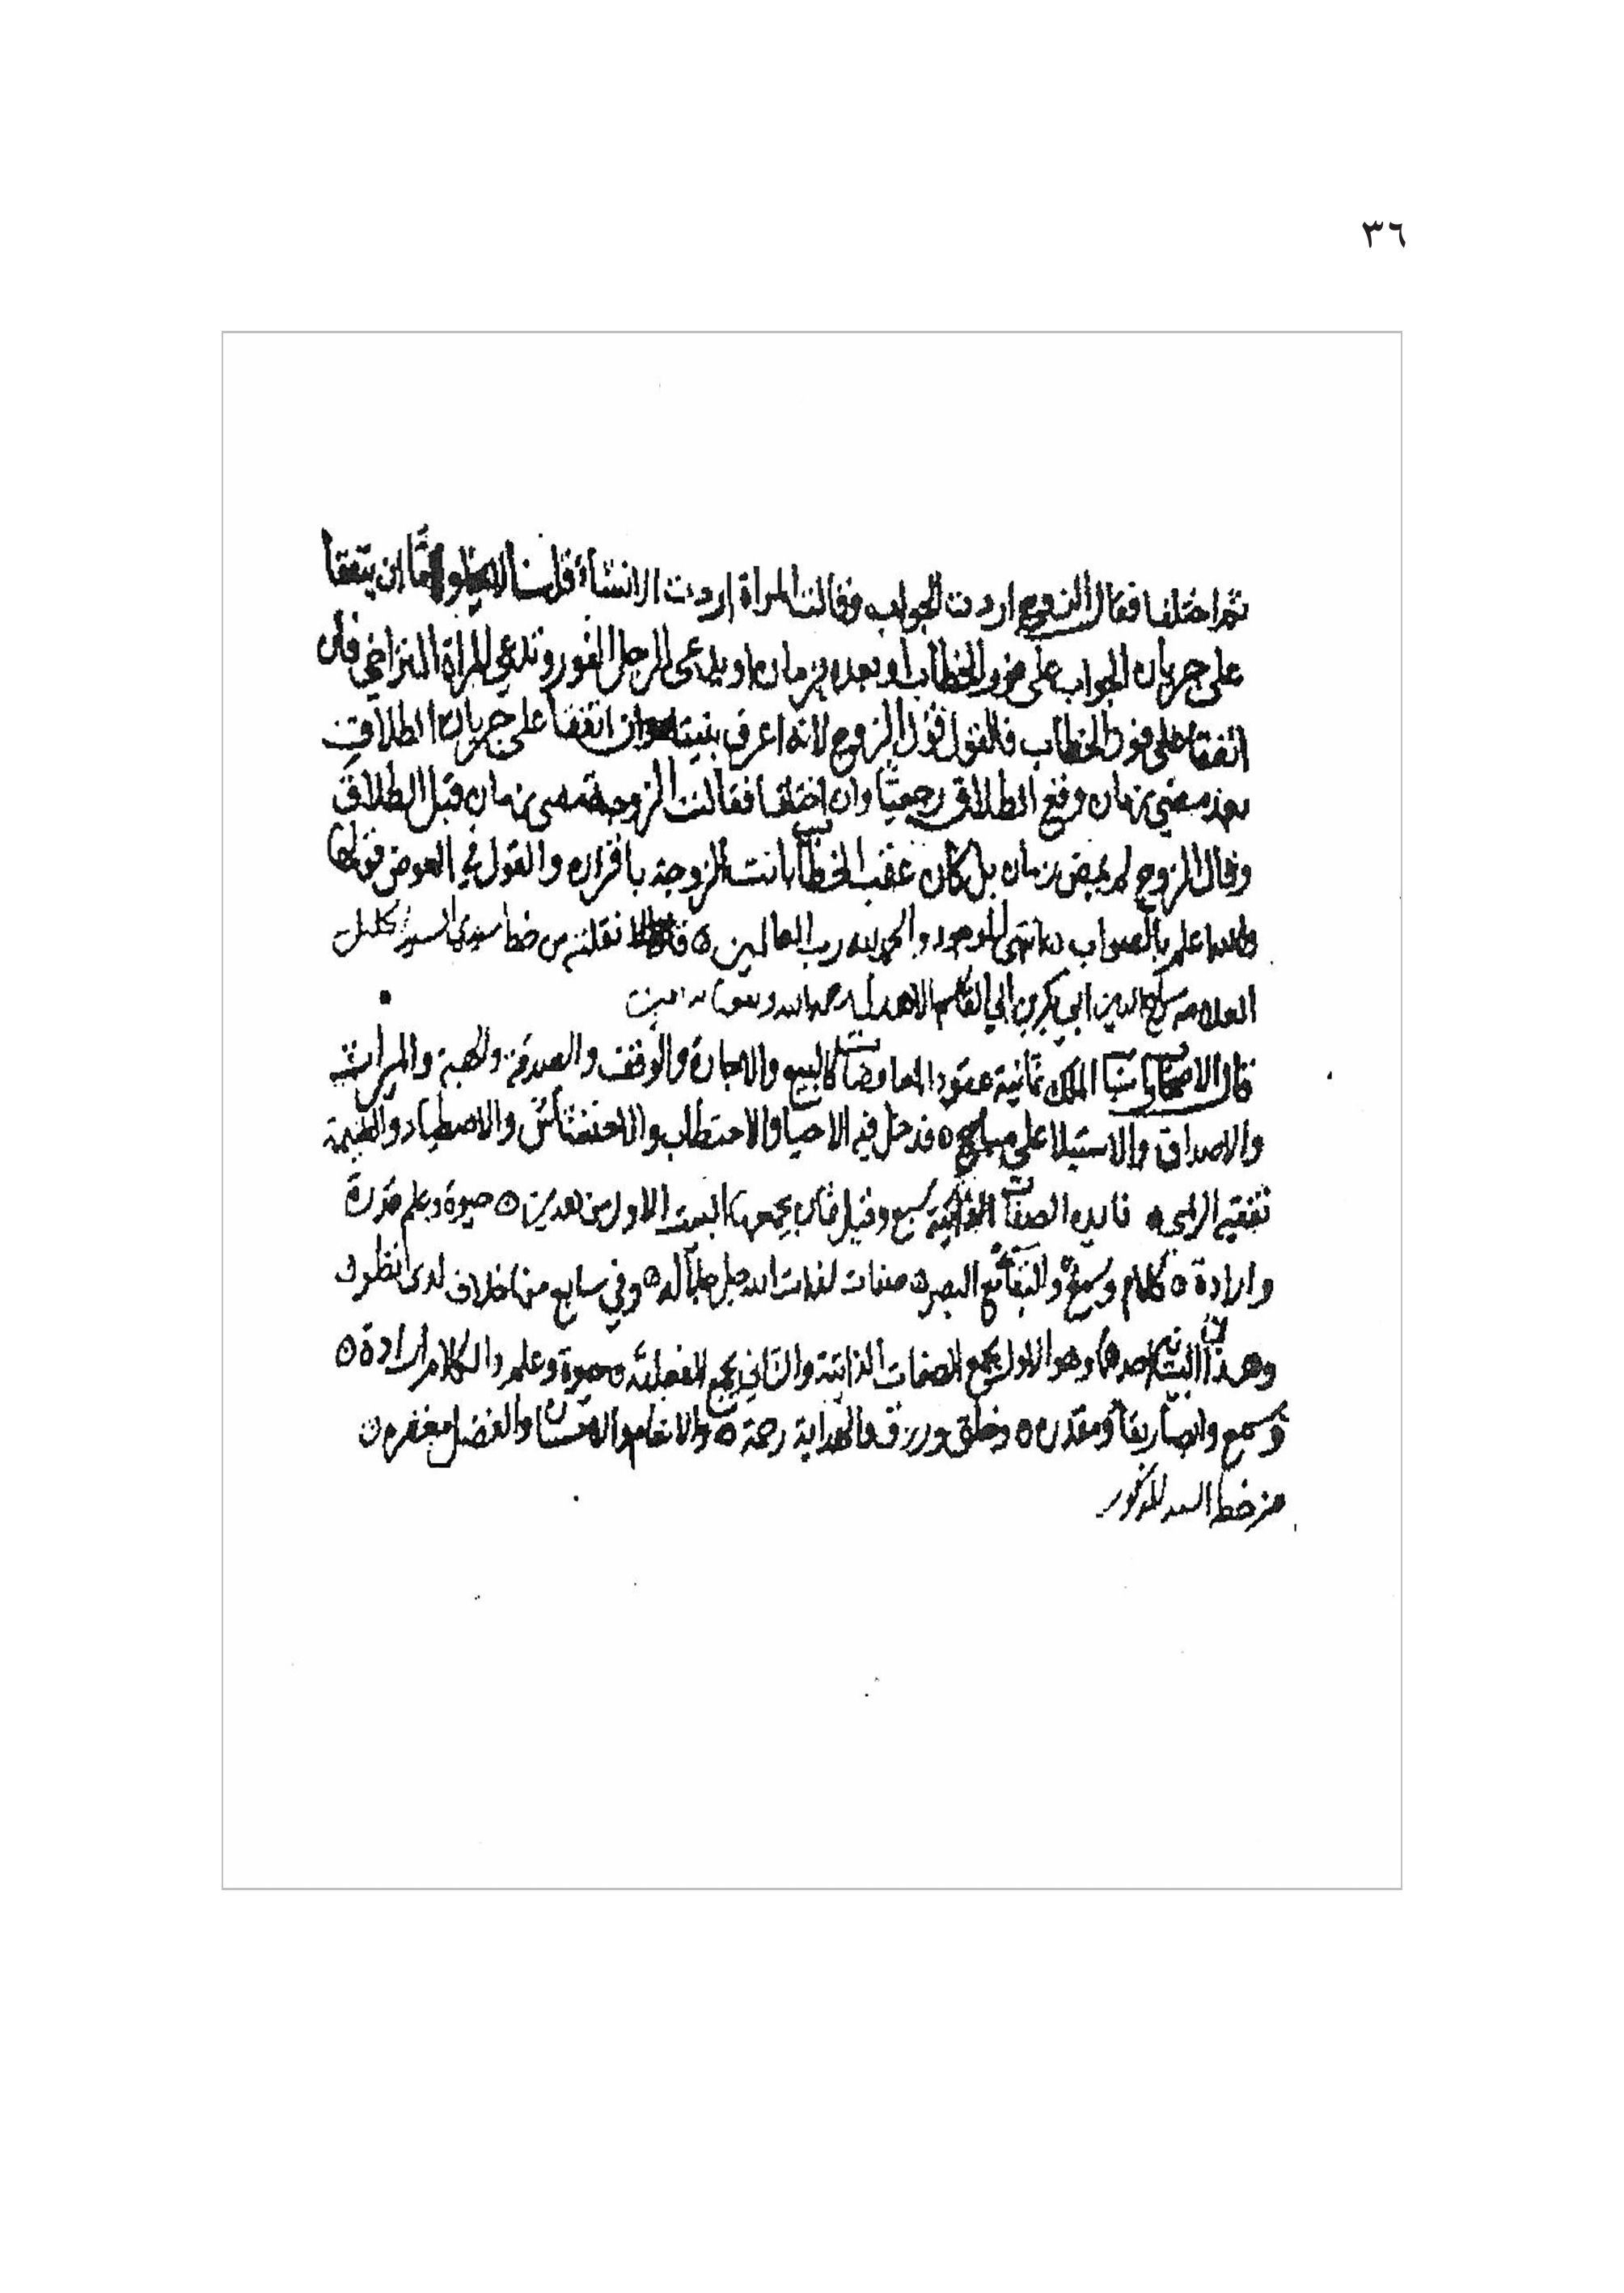 ٣٦
ثم اختلفا فقال الزوج اردت الجواب وقالت المراة اردت الانشاء قلنا اما ان يتفقا
على جريان الجواب على فور الخطاب او بعده بزمان او يدعى الرجل الفور وتدعي المراة التراخي فان
اتفقا على فور الخطاب فالقول قول الزوج لانه اعرف بنيته وان اتفقا على جريان الطلاق
بعد مضي زمان وقع الطلاق رجعيا وان اختلفا فقالت الزوجة مضى زمان قبل الطلاق
وقال الزوج لم يمض زمان بل كان عقب الخطاب بانت الزوجة باقراره والقول في العوض قولها
والله اعلم بالصواب انتهى الموجود والحمد لله رب العالمين ٥ نقلته من خط سيدي السيد الجليل
العلامه الدين ابي بكر بن ابي القاسم الاهدل رحمه الله امين
قال الاصحاب اسباب الملك ثمانية عقود المعاوضات كالبيع والاجارة والوقف والصدقة والهبة والميراث
والاصداق والاستيلا على مباح ٥ فدخل فيه الاحيا والاحتطاب والاحتشاش والاصطياد والغنيمة
فايده الصفات الذاتية سبع وقيل ثمان يجمعها البيت الاول من هذين ٥ حيوة وعلم قدرة
وارادة ٥ كلام وسمع والبقا مع البصر ٥ صفات لذات الله جل جلاله ٥ وفي سابع منها خلاف لدى النظر
وهذان البيتان احدهما وهو الاول يجمع الصفات الذاتية والثاني يجمع الفعلية ٥ حيوة وعلم والكلام ارادة ٥
وسمع وابصار بقا ومقدره ٥ وخلق ورزق والهداية رحمة ٥ والانعام والاحسان والفضل مغفره ٥
من خط السيد المذكور